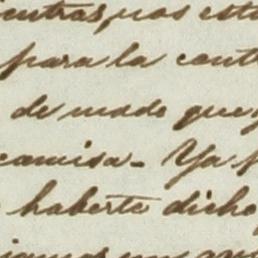 nos est
para la cont
de modo que
camisa. Ya
haberte dicho